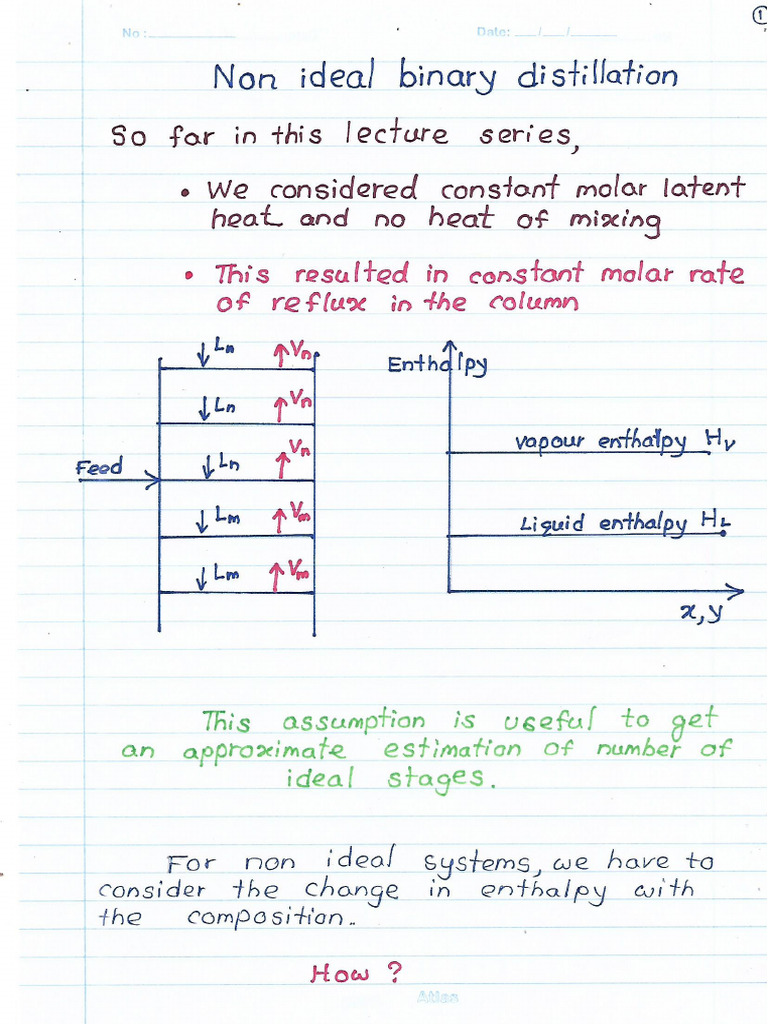 1
No : Date: __/__/____
Non ideal binary distillation
So far in this lecture series,
• We considered constant molar latent
heat and no heat of mixing
• This resulted in constant molar rate
of reflux in the column
Ln Vn
Ln Vn
Ln Vn
Feed
Lm Vm
Lm Vm
Enthalpy
vapour enthalpy Hv
Liquid enthalpy HL
x, y
This assumption is useful to get
an approximate estimation of number of
ideal stages.
For non ideal systems, we have to
consider the change in enthalpy with
the composition..
How ?
Atlas